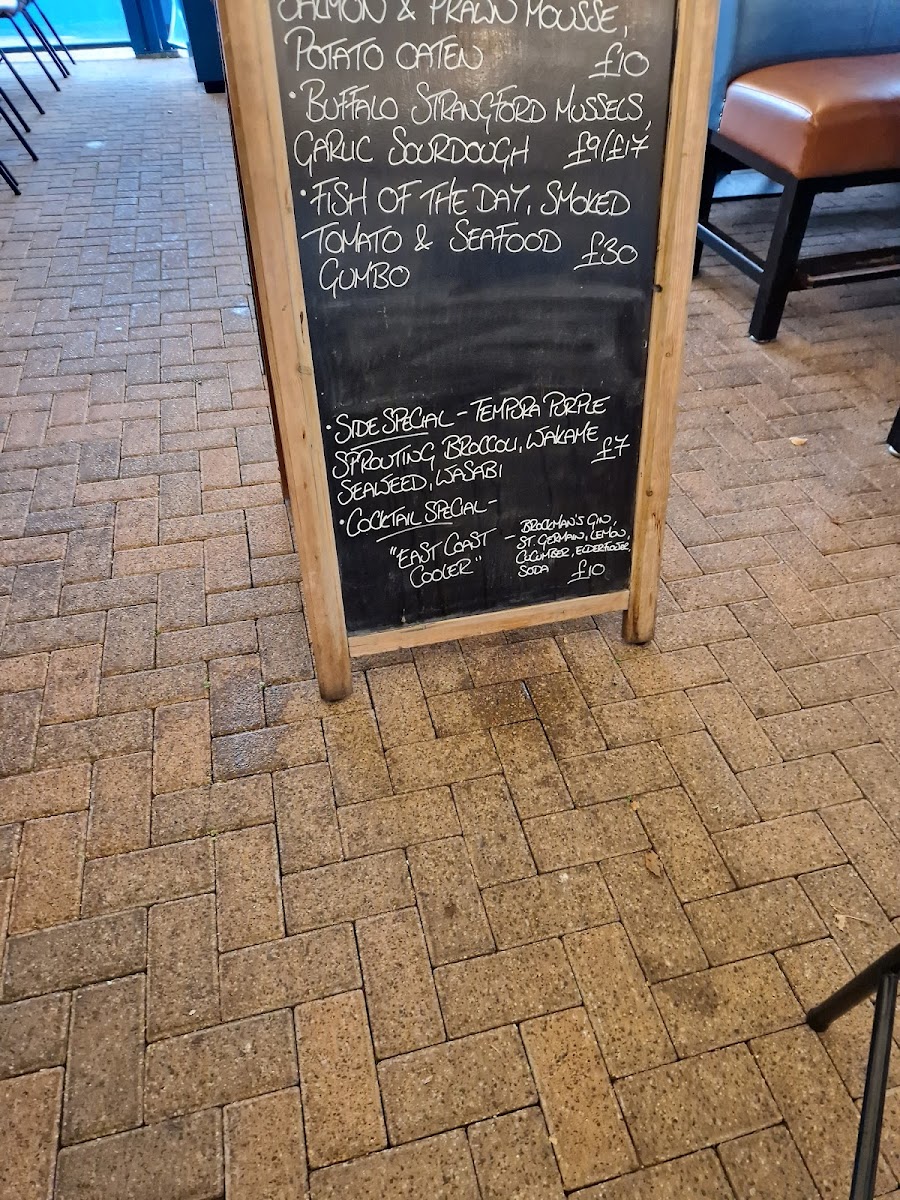 SALMON & PRAWN MOUSSE,
POTATO OATEN £10
• BUFFALO STRANGFORD MUSSELS,
GARLIC SOURDOUGH £9/£17
• FISH OF THE DAY, SMOKED
TOMATO & SEAFOOD £30
GUMBO
• SIDE SPECIAL - TEMPORA PURPLE
SPROUTING BROCCOLI, WAKAME £7
SEAWEED, WASABI
• COCKTAIL SPECIAL -
"EAST COAST COOLER" - BROCKMAN'S GIN,
ST. GERMAIN, LEMON,
CUCUMBER, ELDERFLOWER,
SODA £10